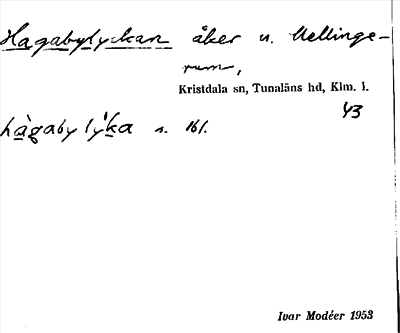 Hagabylyckan åker u. Mellinge-
rum,
Kristdala sn, Tunaläns hd, Klm. l.
43
hàgaby lýka s. 161.
Ivar Modéer 1953